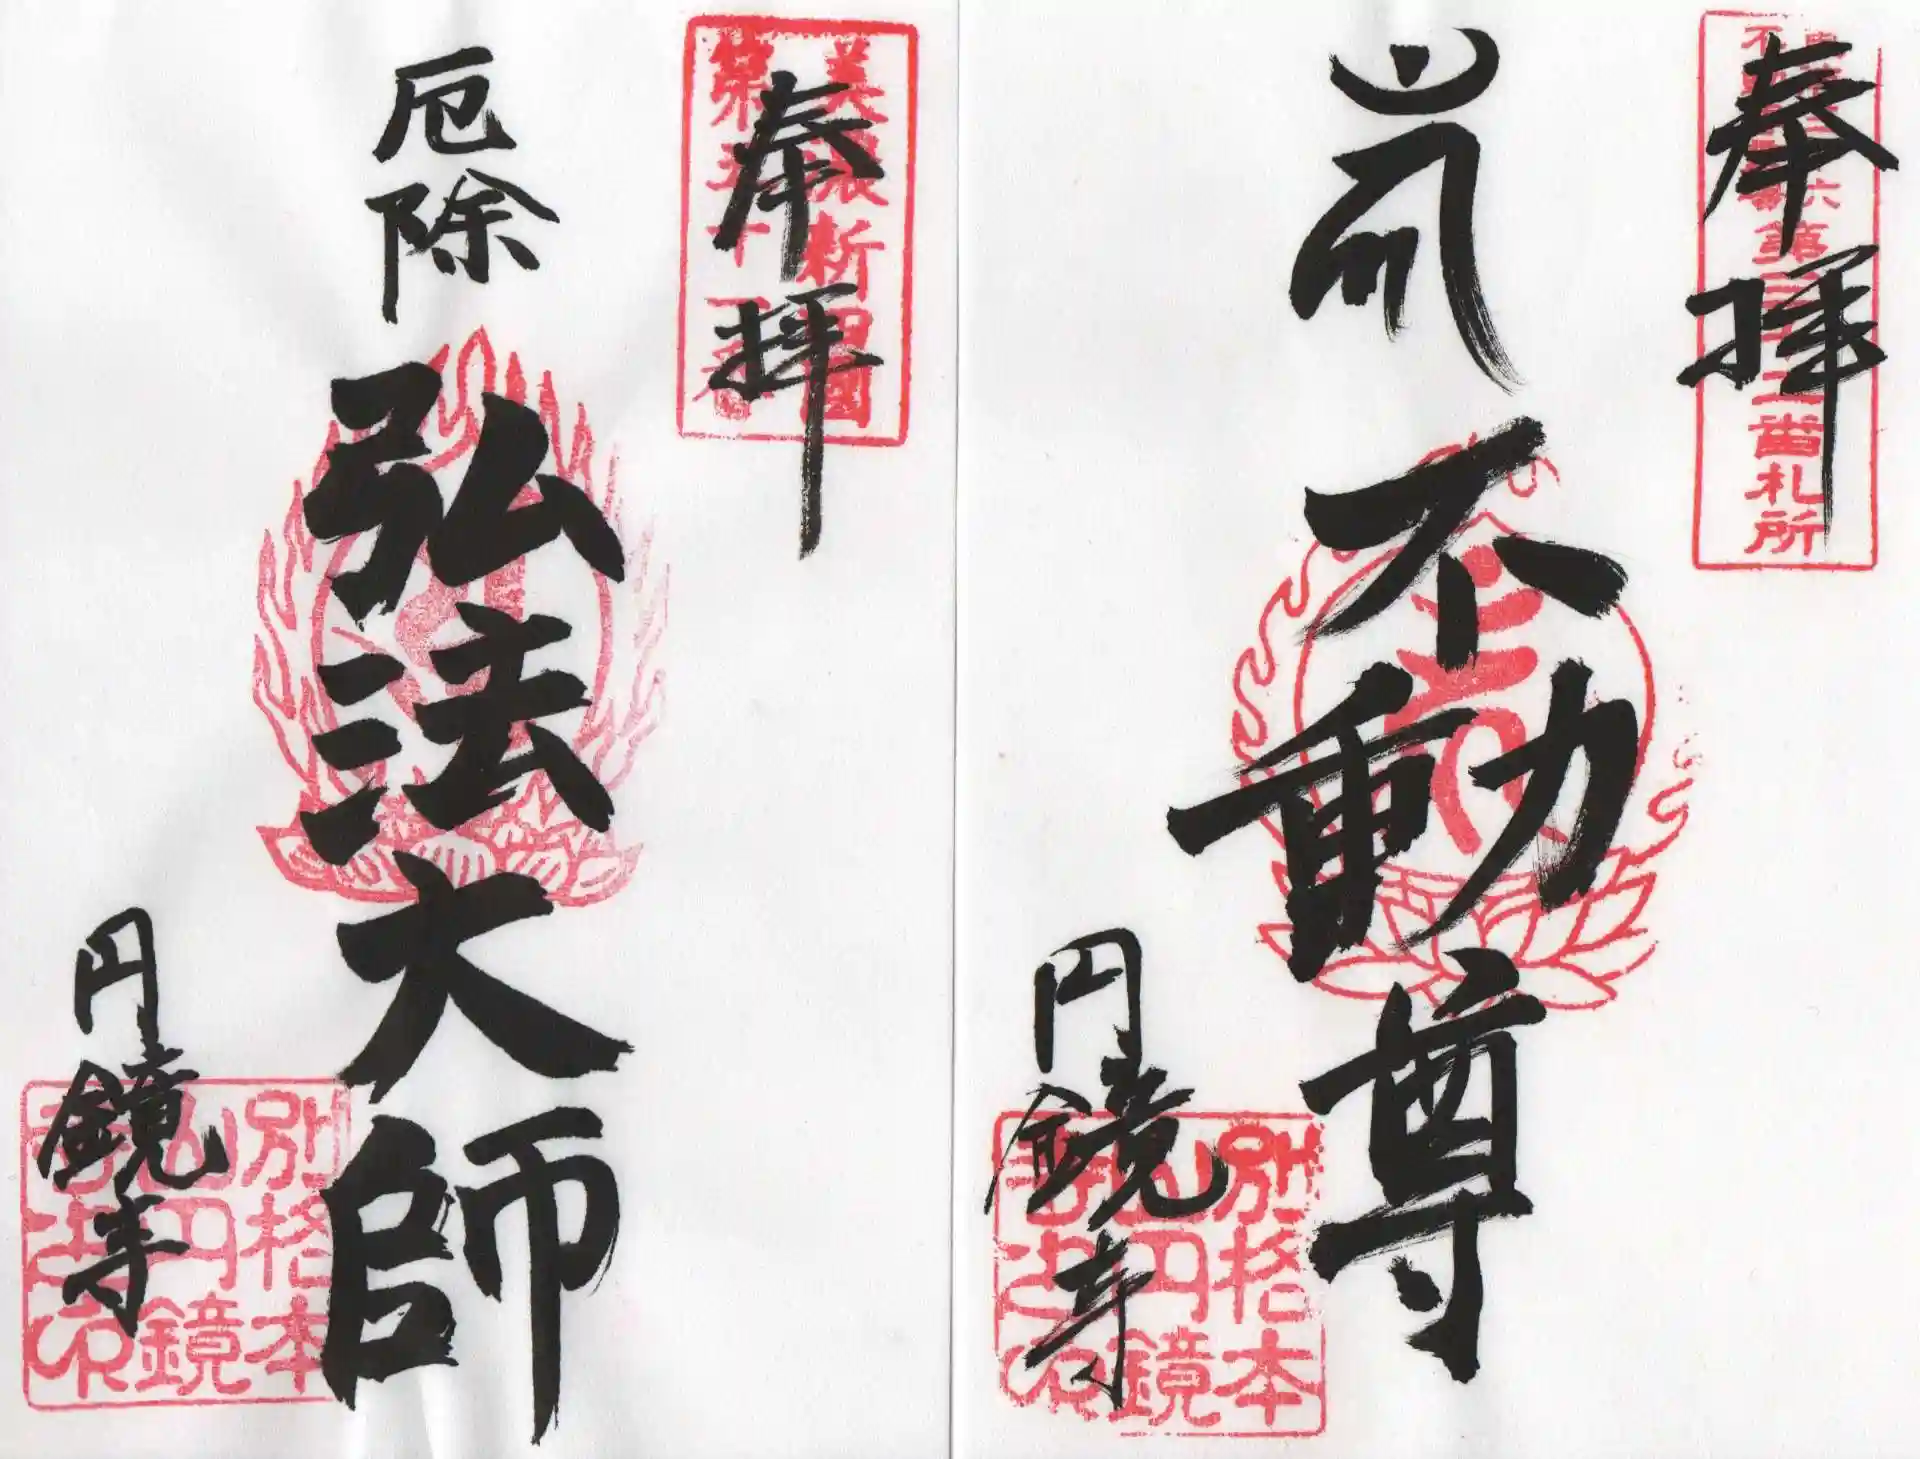 奉拝
不動尊
円鏡寺
別格本
山円鏡
寺之印
札所
奉拝
厄除
弘法大師
円鏡寺
別格本
山円鏡
寺之印